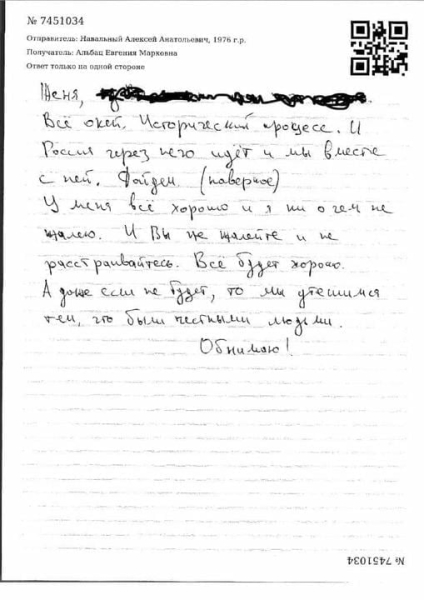 № 7451034
Отправитель: Навальный Алексей Анатольевич, 1976 г.р.
Получатель: Альбац Евгения Марковна
Ответ только на одной стороне
Женя,
Всё окей. Исторический процесс. И
Россия через него идёт и мы вместе
с ней. Дойдём (наверное)
У меня всё хорошо и я ни о чем не
жалею. И Вы не жалейте и не
расстраивайтесь. Всё будет хорошо.
А даже если не будет, то мы утешимся
тем, что были честными людьми.
Обнимаю!
№ 7451034